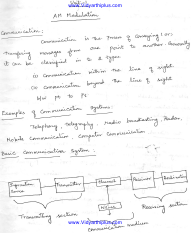 www.Vidyarthiplus.com
Unit-I
AM Modulation
Communication:
Communication is the Process of Conveying (or)
Transferring messages from one point to another. Generally
it can be classified in to 2 types.
(i) Communication within the line of sight
(ii) Communication beyond the line of sight
Examples of Communication Systems:
Telephony, Telegraphy, Radio broadcasting, Radar,
Mobile Communication, Computer Communication
Basic Communication System:
Information Source
Transmitter
Channel
Receiver
Destination
Noise
Transmitting section
Receiving section
Communication medium
www.Vidyarthiplus.com